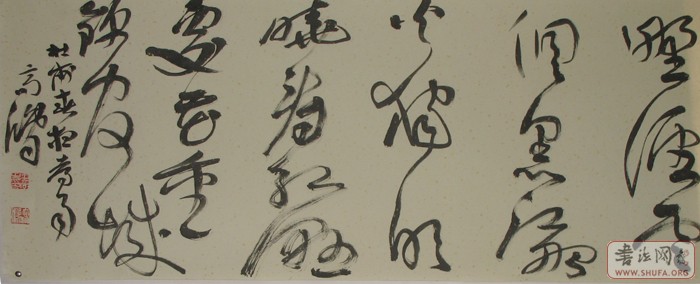 野徑云
俱黑江船
火獨明
曉看紅濕
處花重
錦官城
杜甫春夜喜雨
高
書法网
WWW.SHUFA.ORG